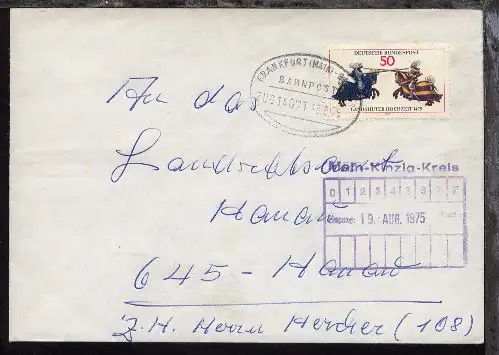 DEUTSCHE BUNDESPOST
50
LANDSHUTER HOCHZEIT 1475
FRANKFURT (MAIN)
BAHNPOST
An das
Landratsamt
Main-Kinzig-Kreis
0 1 2 3 4 5 6 7
Hanau
19. AUG. 1975
645 - Hanau
z. H. Herrn Herdier (108)